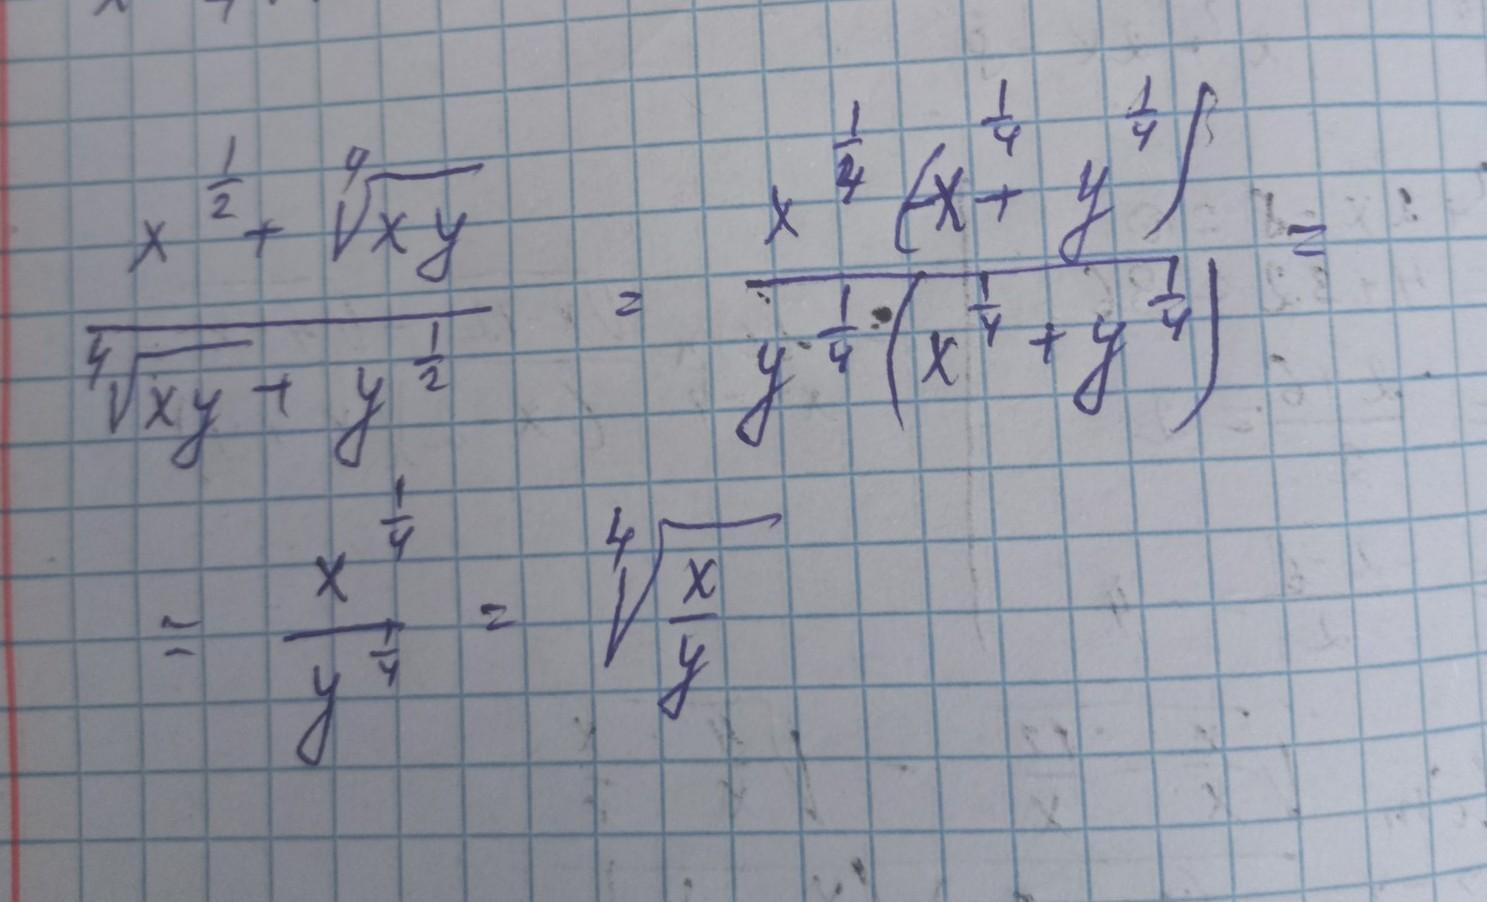 \frac{x^{\frac{1}{2}} + \sqrt[4]{xy}}{\sqrt[4]{xy} + y^{\frac{1}{2}}} = \frac{x^{\frac{1}{4}} (x^{\frac{1}{4}} + y^{\frac{1}{4}})}{y^{\frac{1}{4}} \cdot (x^{\frac{1}{4}} + y^{\frac{1}{4}})} =
= \frac{x^{\frac{1}{4}}}{y^{\frac{1}{4}}} = \sqrt[4]{\frac{x}{y}}